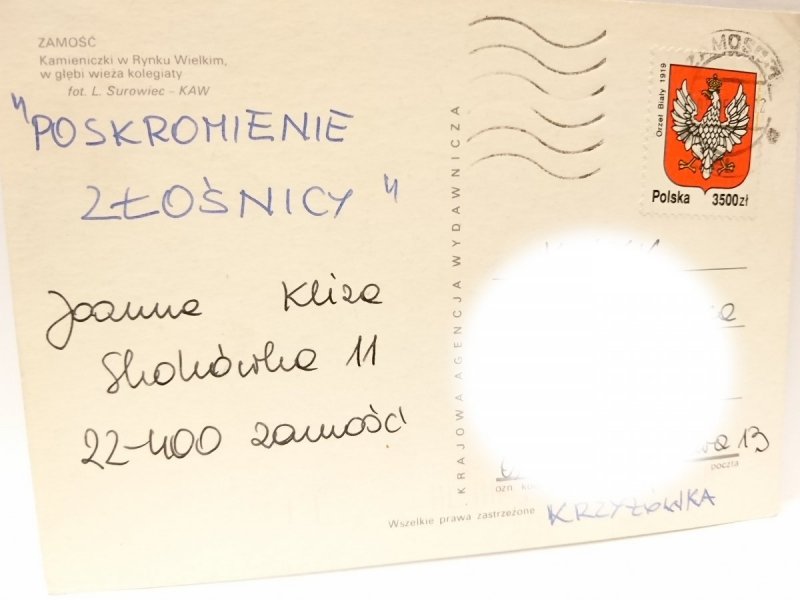 ZAMOŚĆ
Kamieniczki w Rynku Wielkim,
w głębi wieża kolegiaty
fot. L. Surowiec – KAW
"POSKROMIENIE
ZŁOŚNICY"
Joanna Kliza
Skokówka 11
22-400 Zamość
KRAJOWA AGENCJA WYDAWNICZA
Orzeł Biały 1919
Polska 3500zł
13
poczta
ozn.
Wszelkie prawa zastrzeżone
KRZYŻÓWKA